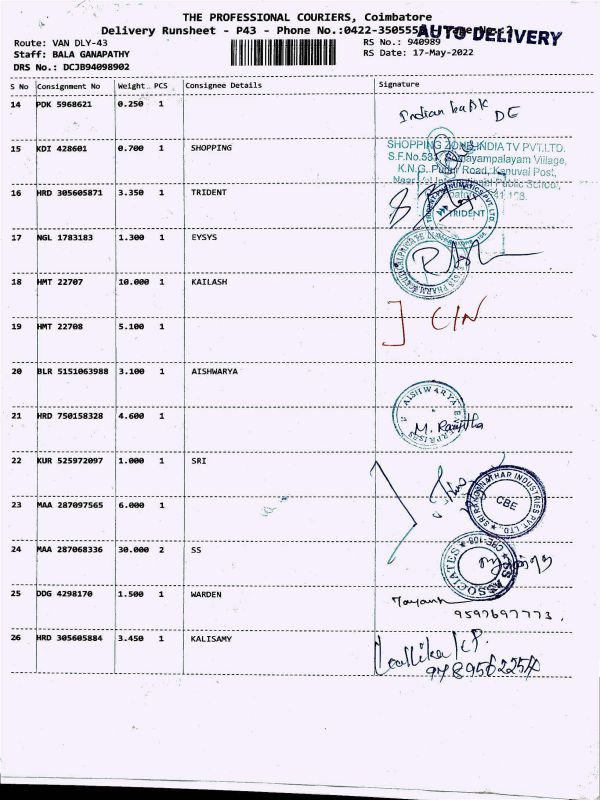 THE PROFESSIONAL COURIERS, Coimbatore
Delivery Runsheet - P43 - Phone No.:0422-350555
AUTO DELIVERY
Route: VAN DLY-43
RS No.: 940989
Staff: BALA GANAPATHY
RS Date: 17-May-2022
DRS No.: DCJB94098902
S No Consignment No Weight PCS Consignee Details Signature
14 PDK 5968621 0.250 1 Indian bank DE
15 KDI 428601 0.700 1 SHOPPING
SHOPPING ZONE INDIA TV PVT.LTD.
K.N.G. Pudur Road, Kanuvai Post,
16 HRD 305605871 3.350 1 TRIDENT
TRIDENT
17 NGL 1783183 1.300 1 EYSYS
18 HMT 22707 10.000 1 KAILASH
19 HMT 22708 5.100 1
20 BLR 5151063988 3.100 1 AISHWARYA
AISHWARYA ENTERPRISES
21 HRD 750158328 4.600 1
22 KUR 525972097 1.000 1 SRI
CBE
23 MAA 287097565 6.000 1
24 MAA 287068336 30.000 2 SS
SS ASSOCIATES
25 DDG 4298170 1.500 1 WARDEN
9597697773
26 HRD 305605884 3.450 1 KALISAMY